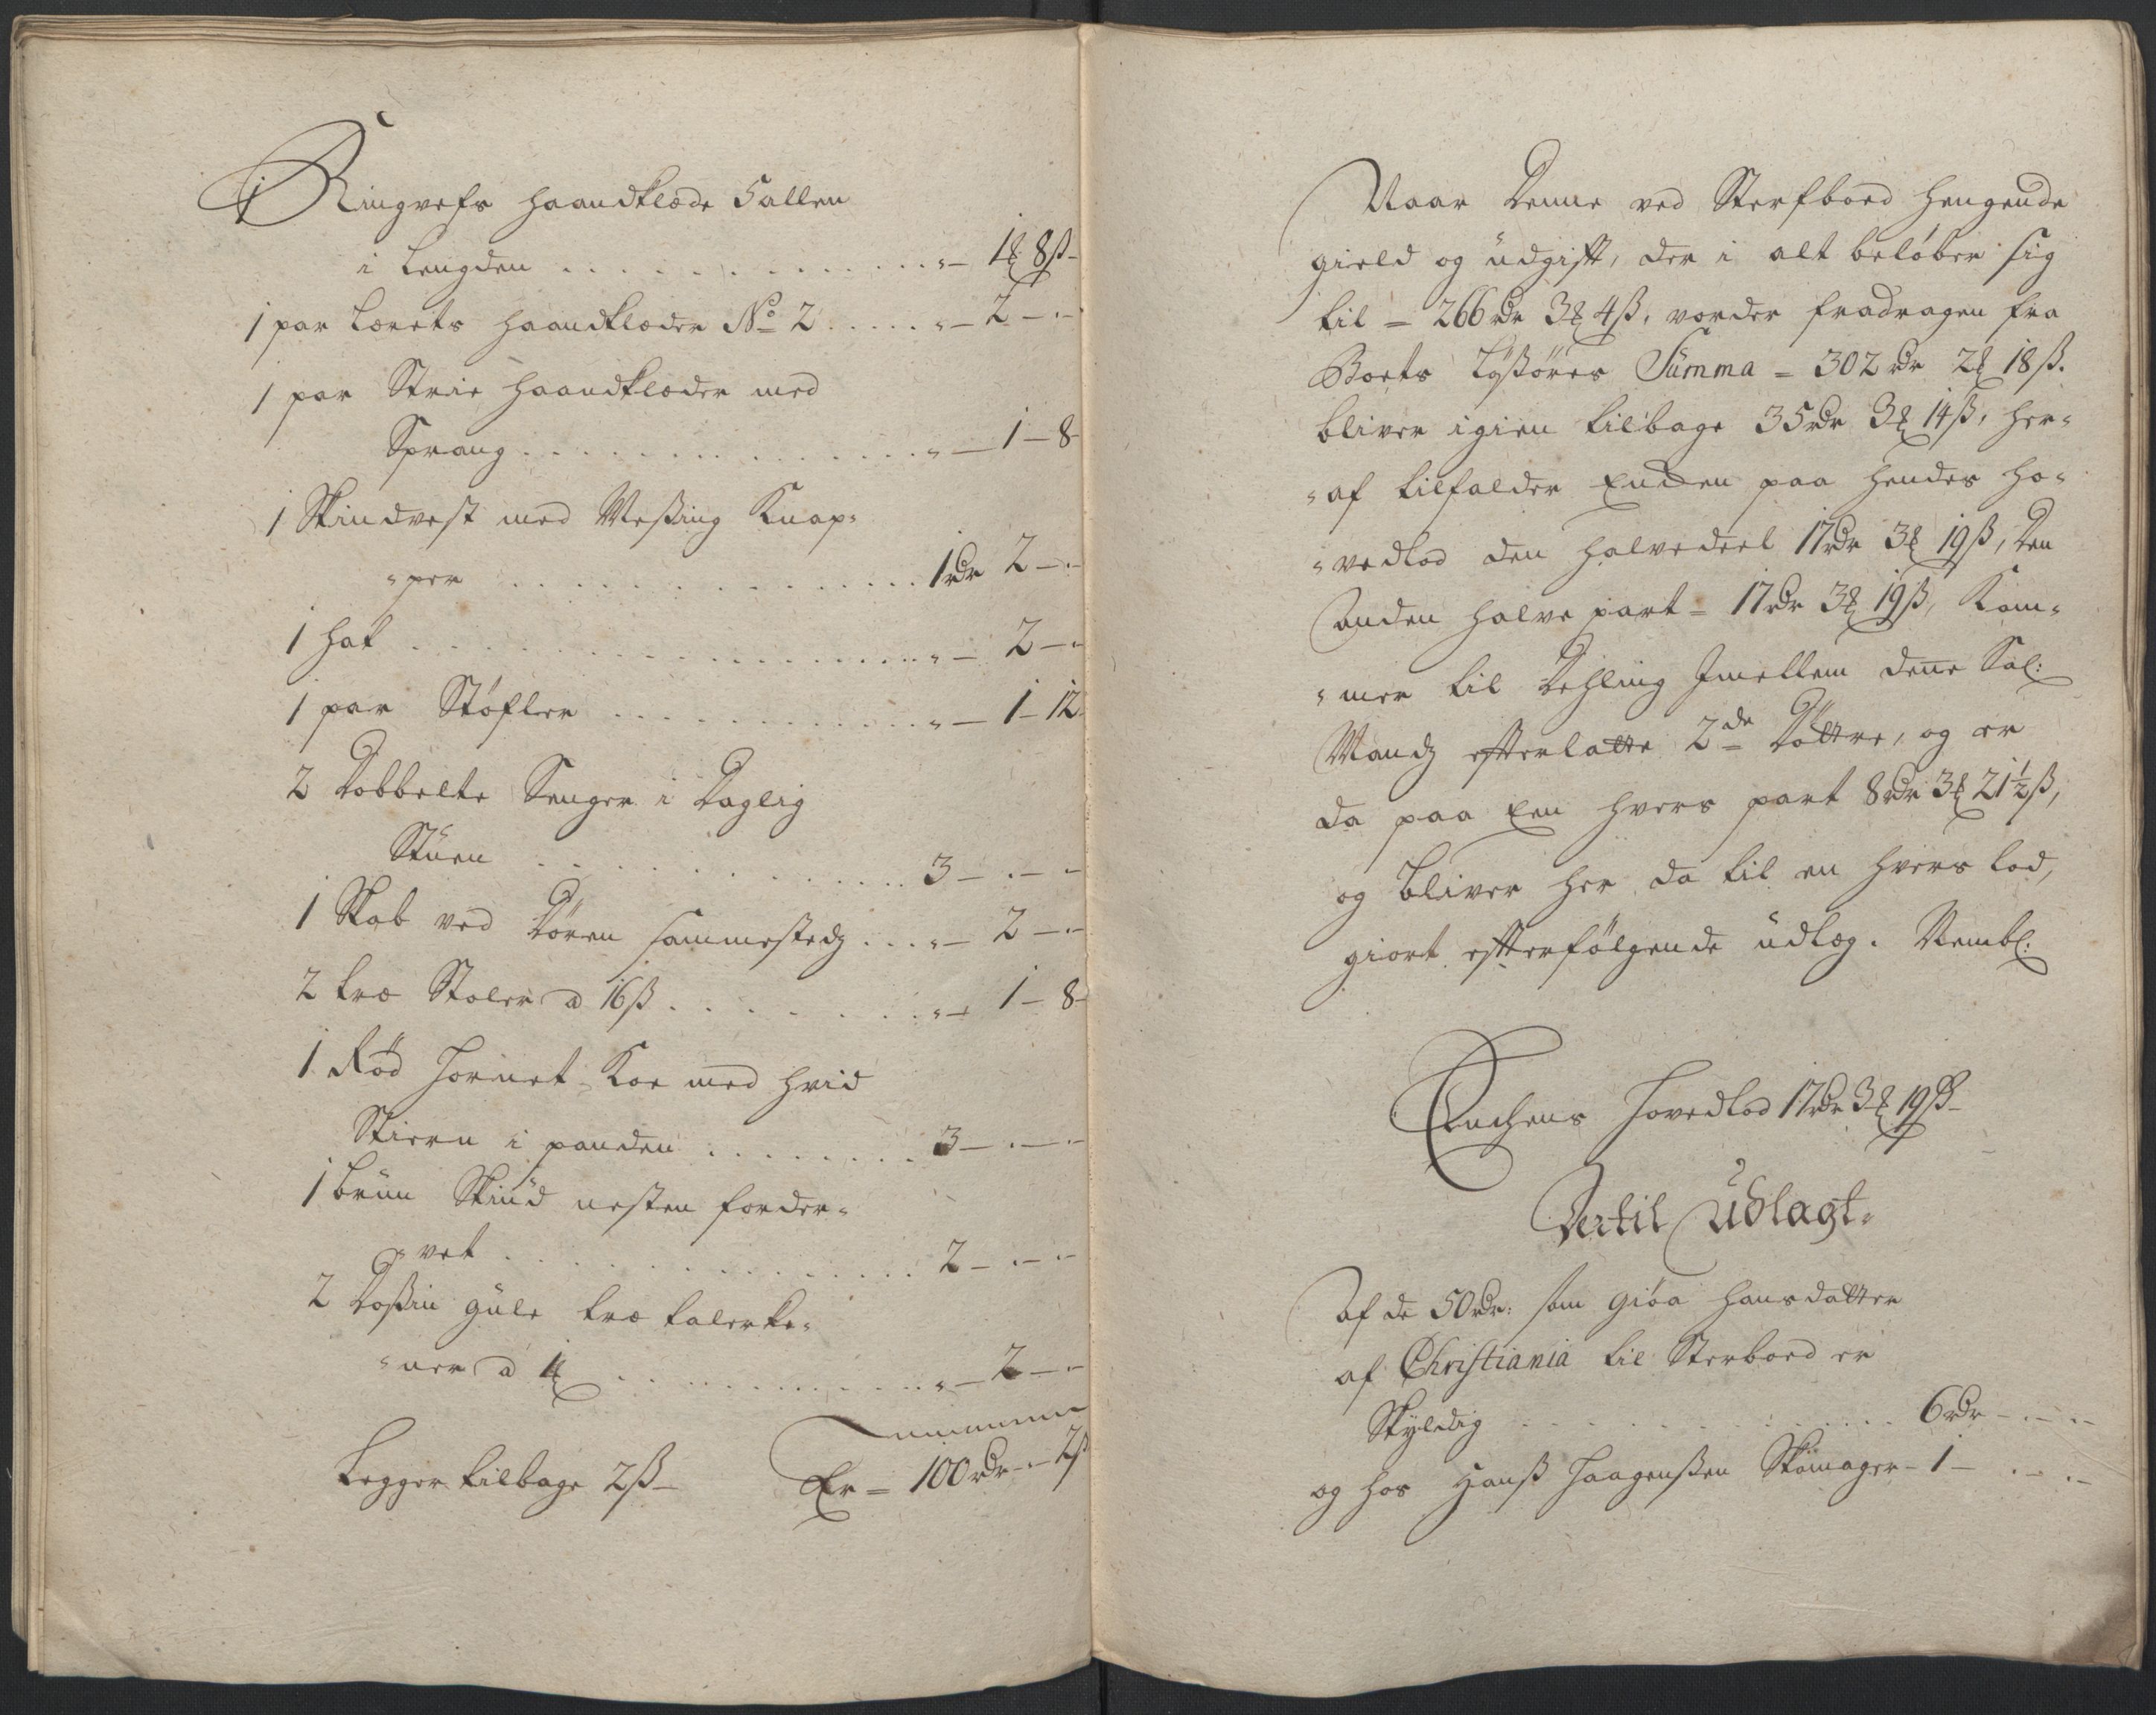 1 Ringvefs haandklæde 5 allen
i Lengden . . . . . . . „ — 1 8ß
1 par Lærets haandklæder No 2 . . . . „ — 2 — „
1 par Strie haandklæder med
Sprang . . . . . . . „ — 1 — 8
1 Skindvest med Messing Knap=
=per . . . . . . . 1 rdr 2 — „
1 hat . . . . . . . „ — 2 — „
1 par Støfler . . . . . . . „ — 1 — 12
2 Dobbelte Senger i Daglig
Stuen . . . . . . . 3 — „ — „
1 Skab ved Døren sammestedz . . . „ — 2 — „
2 træ Stoler a 16ß . . . . . . „ — 1 — 8
1 Rød Hornet Koe med hvid
Stiern i panden . . . . . . 3 — „ — „
1 brun Skiud nesten forder=
=vet . . . . . . . 2 — „ — „
2 Dossin gule træ talerke=
=ner a 1 . . . . . . . „ — 2 — „
Legger tilbage 2ß — Er = 100 rdr — „ — 2ß
Naar Denne ved Sterfboed hengende
gield og udgift, der i alt beløber sig
til = 266 rdr 3 4ß, vorder fradragen fra
Boets Løssøres Summa = 302 rdr 2 18ß.
bliver igien tilbage 35 rdr 3 14ß, her=
=af tilfalder Encken paa hendes ho=
=vedlod den halvedeel 17 rdr 3 19ß, Den
anden halve part = 17 rdr 3 19ß, Kom=
=mer til Dehling Imellem denne Sal:
Mandz efterlatte 2de Døttre, og er
da paa Een hvers part 8 rdr 3 21½ß,
og bliver her da til en hvers lod,
giort efterfølgende udlæg. Nembl:
Enchens Hovedlod 17 rdr 3 19ß
Dertil Udlagt.
af de 50 rdr: som Giøa Hansdatter
af Christiania til Sterboed er
Skyldig . . . . . . . 6 rdr — „ — „
og hos Hanß Haagenßen Skomager — 1 — „ — „